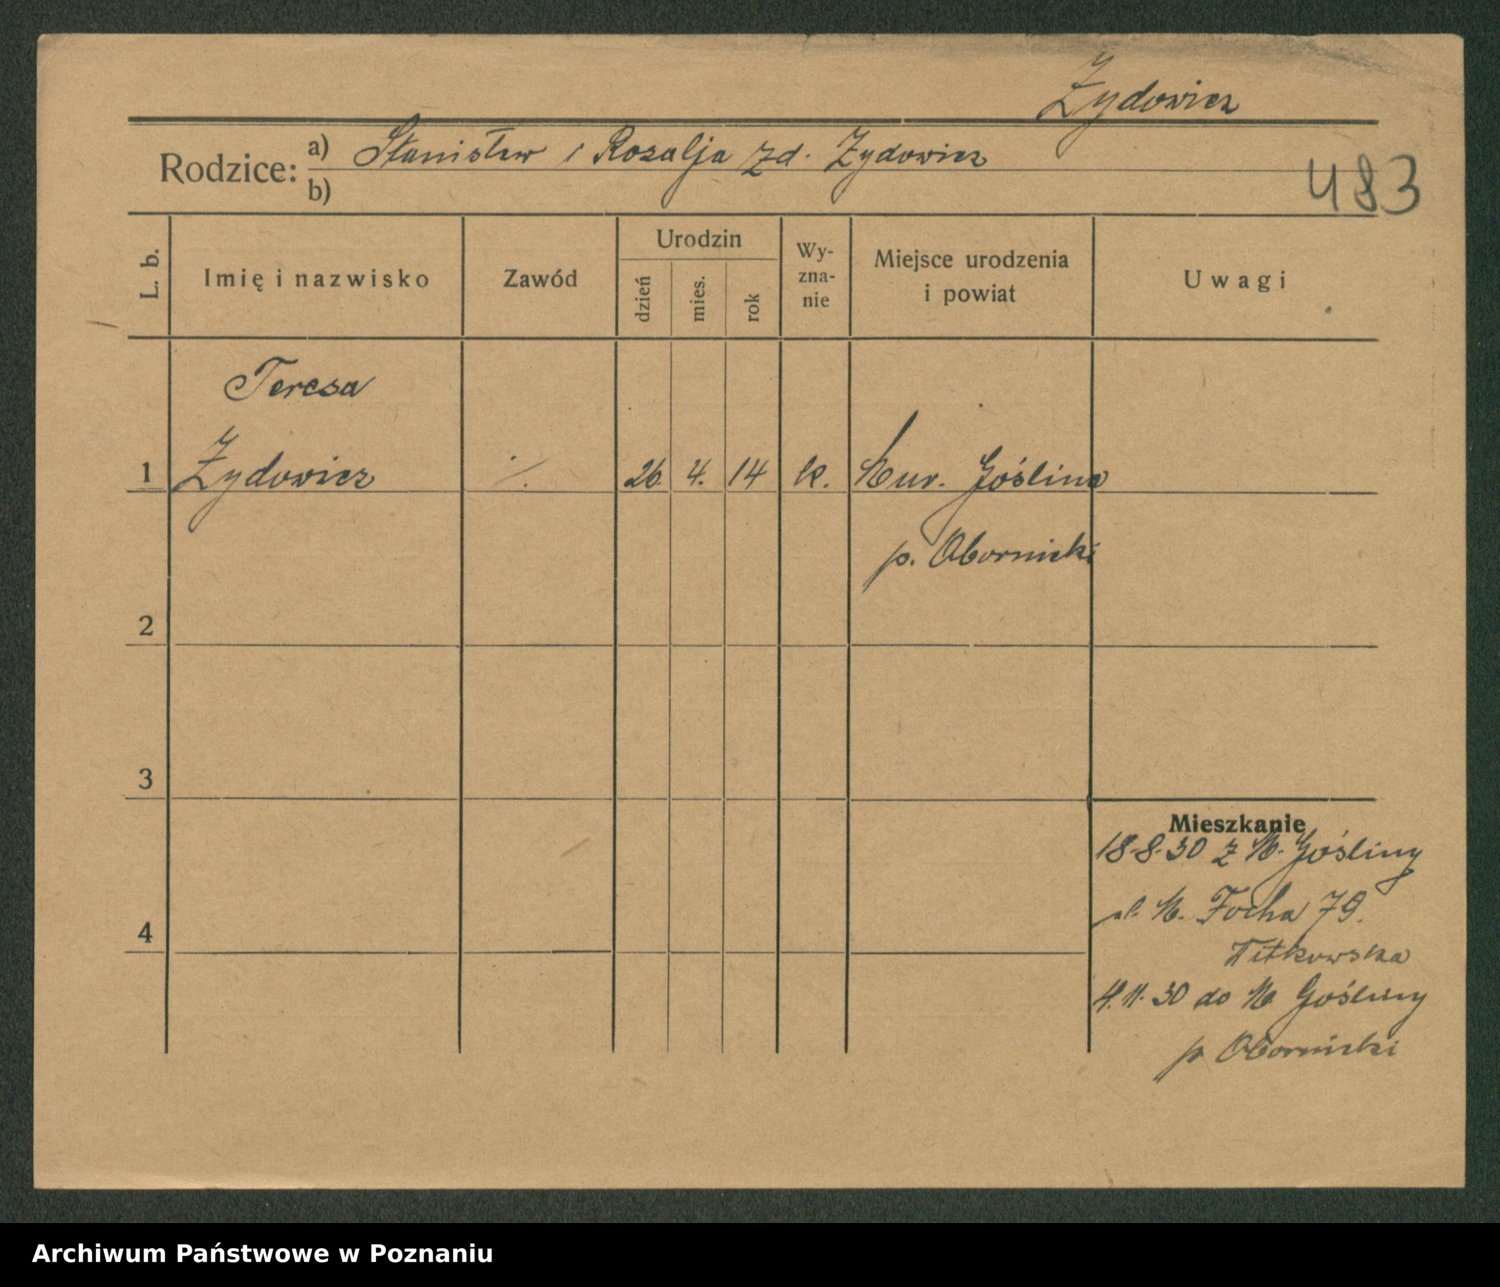 Żydowicz
Rodzice: a) Stanisław i Rozalja zd. Żydowicz
b)
483
L. b.
Imię i nazwisko
Zawód
Urodzin
dzień
mies.
rok
Wy-
zna-
nie
Miejsce urodzenia
i powiat
Uwagi
Teresa
1 Żydowicz ·/. 26 4. 14 k. Mur. Goślina
p. Obornicki
2
3
Mieszkanie
18-8-30 z M. Gośliny
4
M. Focha 79.
4.11.30 do M Gośliny
p Obornicki
Archiwum Państwowe w Poznaniu